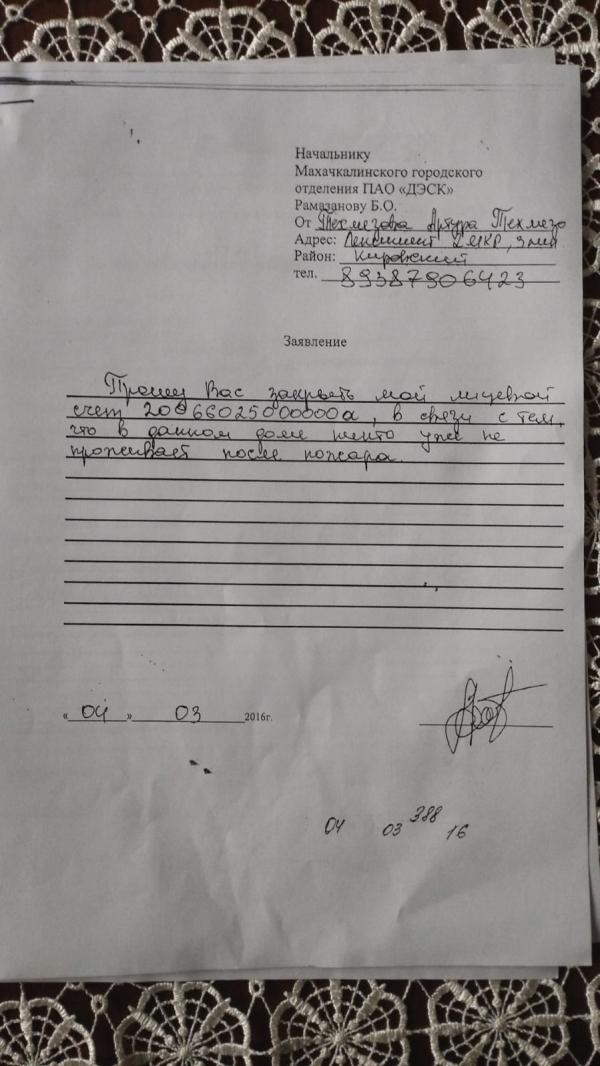 Начальнику
Махачкалинского городского
отделения ПАО «ДЭСК»
Рамазанову Б.О.
От Техмезова Артура Техмезо
Адрес: МКР,
Район: Кировский
тел. 89387906423
Заявление
Прошу Вас закрыть мой лицевой
счет в связи с тем,
что в данном доме никто уже не
проживает после пожара.
« 04 » 03 2016г.
388
04 03 16